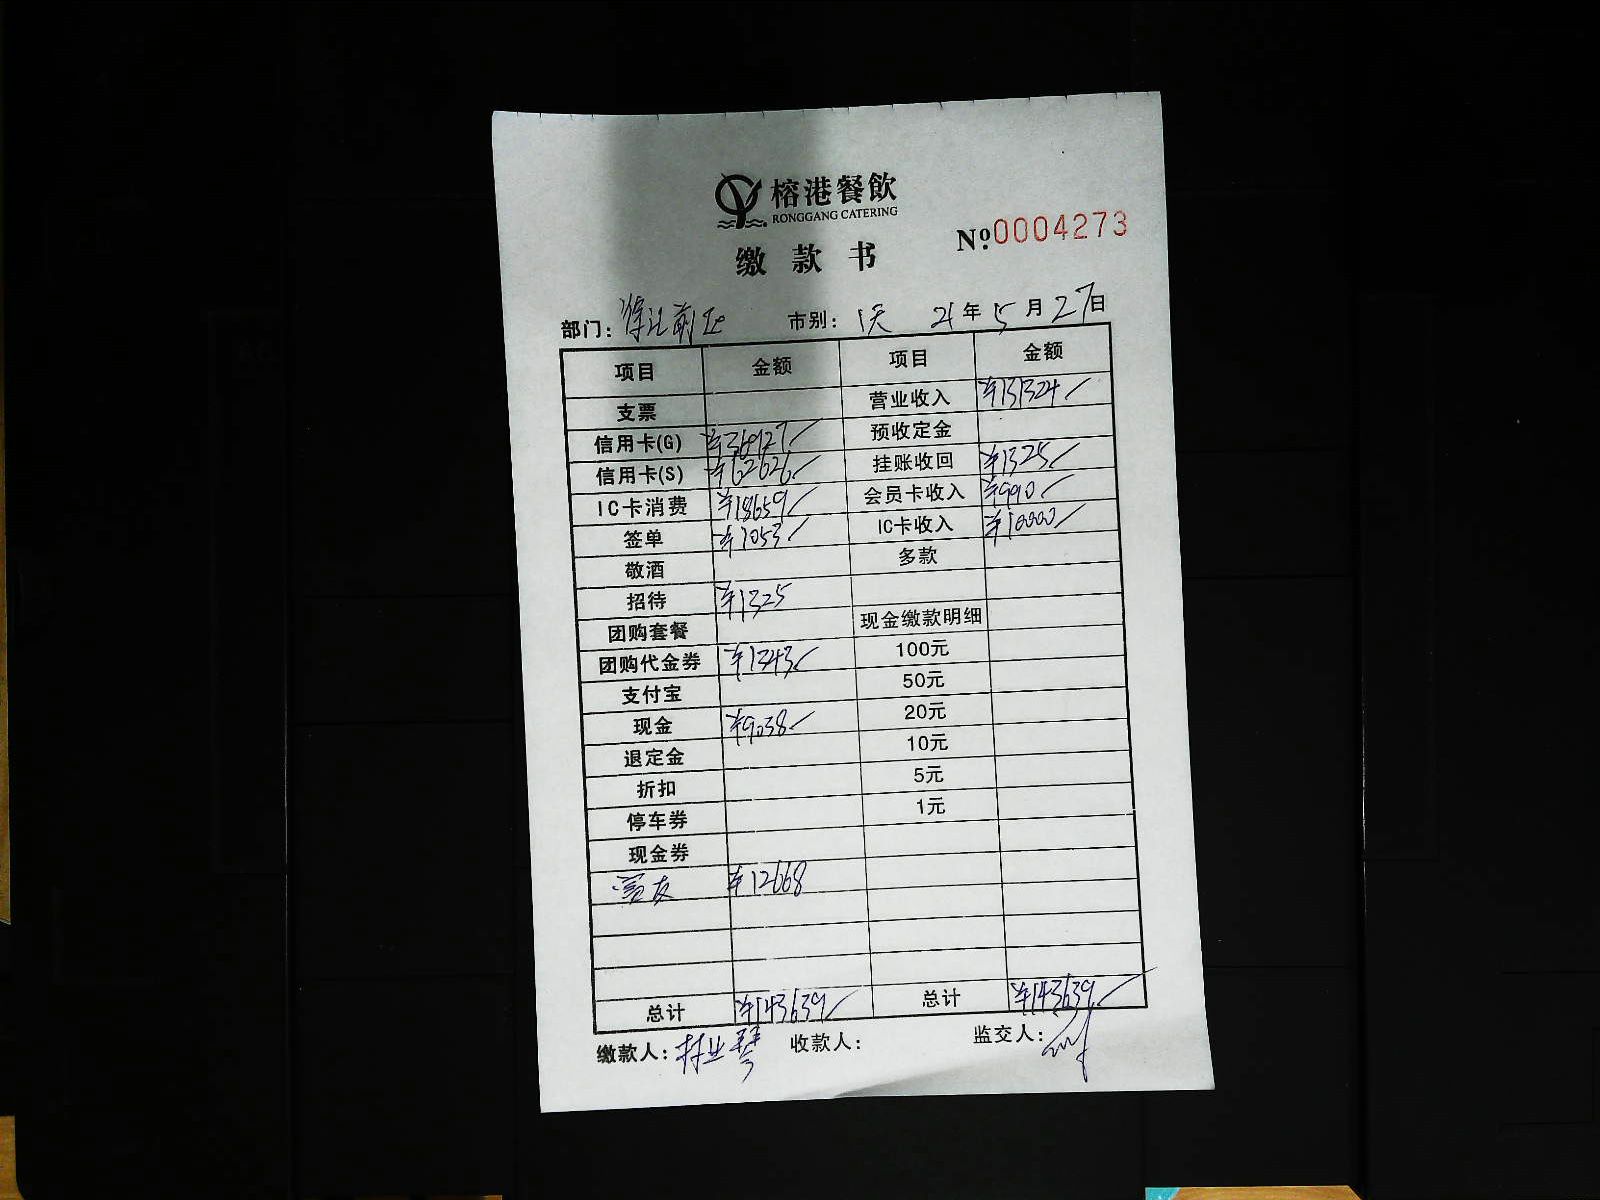 榕港餐飲
RONGGANG CATERING
缴款书
Nº0004273
部门: 徐汇 市别: 21年5月27日
项目 金额 项目 金额
支票 营业收入 ¥131324
信用卡(G) ¥36927 预收定金
信用卡(S) ¥62626 挂账收回 ¥1325
IC卡消费 ¥18659 会员卡收入 ¥990
签单 ¥1053 IC卡收入 ¥10000
敬酒 多款
招待 ¥1325
团购套餐 现金缴款明细
团购代金券 ¥1343 100元
支付宝 50元
现金 ¥9038 20元
退定金 10元
折扣 5元
停车券 1元
现金券
¥12668
总计 ¥143639 总计 ¥143639
缴款人: 收款人: 监交人: